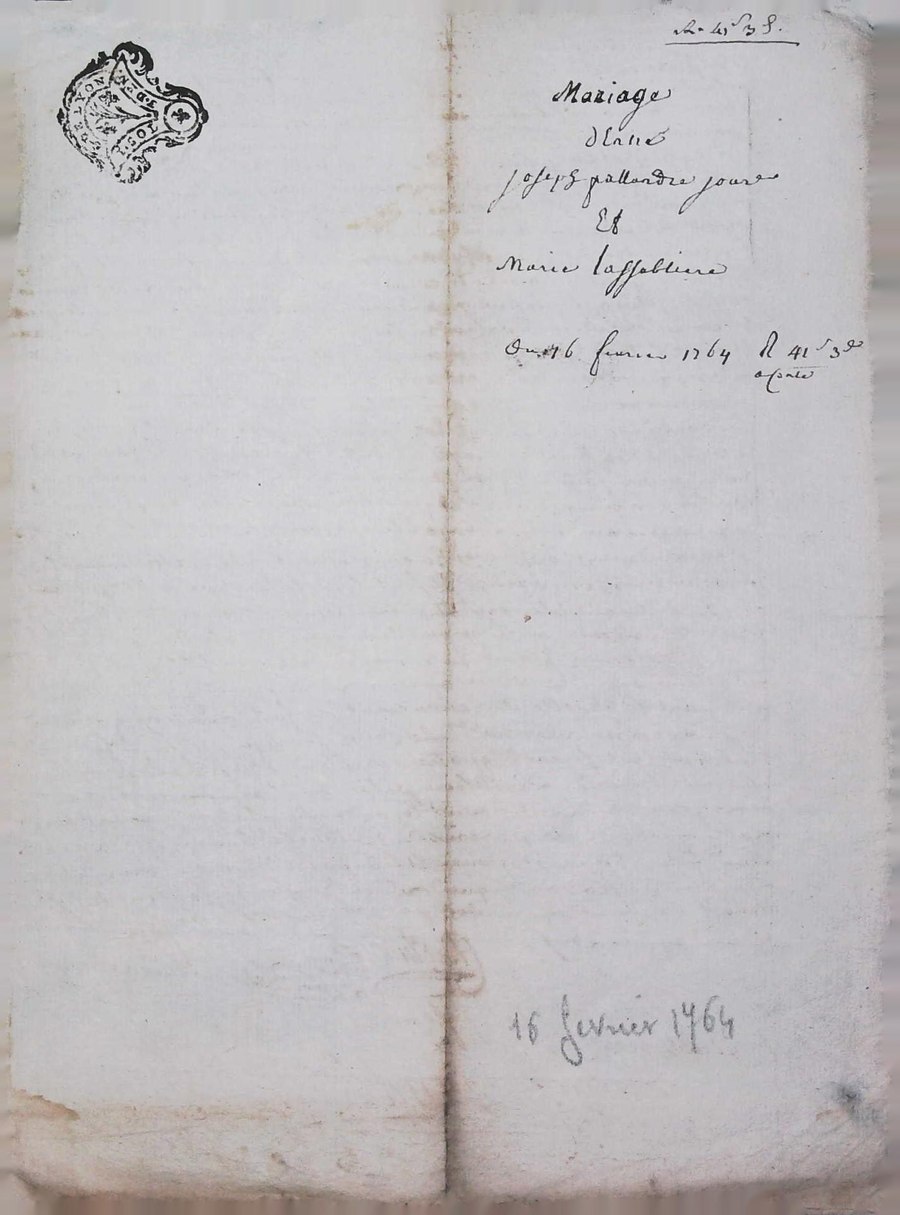 DE LYON
41ˢ 3 d.
Mariage
d'Entre
joseph pallandre jouve
Et
Marie lassablliere
Du 16 fevrier 1764 R 41ˢ 3ᵈ
16 fevrier 1764